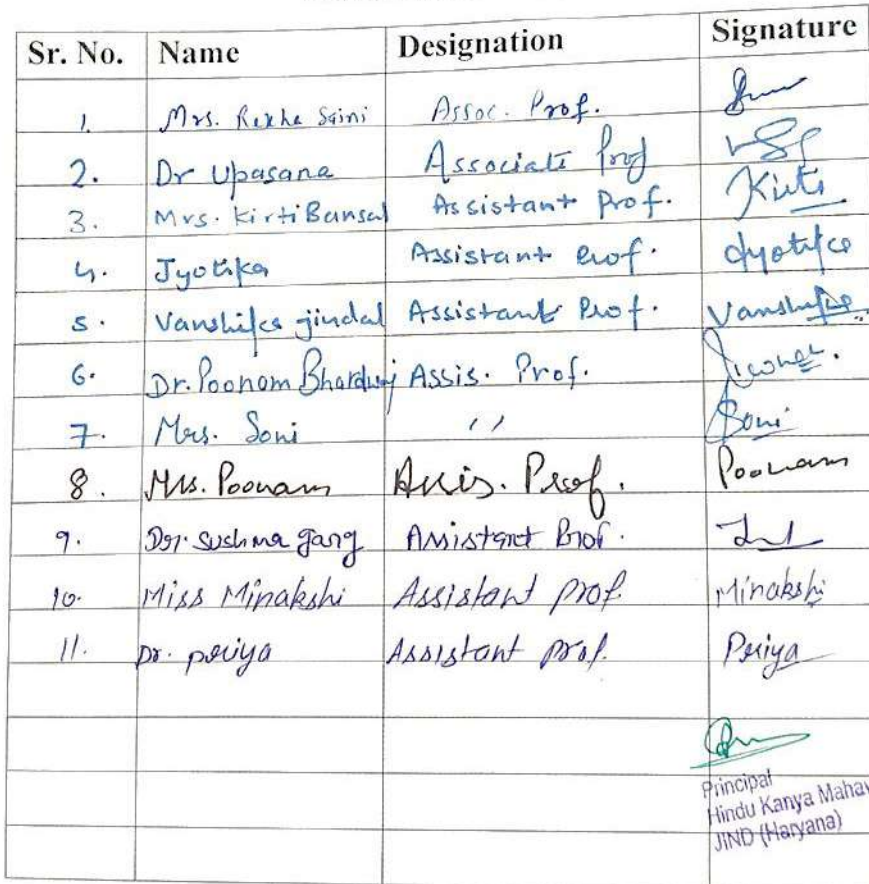 Sr. No. Name Designation Signature
1. Mrs. Rekha Saini Assoc. Prof.
2. Dr Upasana Associate Prof
3. Mrs. Kirti Bansal Assistant Prof. Kirti
4. Jyotika Assistant Prof. Jyotika
5. Vanshika jindal Assistant Prof. Vanshika
6. Dr. Poonam Bhardwaj Assis. Prof.
7. Mrs. Soni ,, Soni
8. Mrs. Poonam Assis. Prof. Poonam
9. Dr. Sushma Garg Assistant Prof.
10. Miss Minakshi Assistant prof. Minakshi
11. Dr. priya Assistant prof. Priya
Principal
Hindu Kanya Mahav
JIND (Haryana)